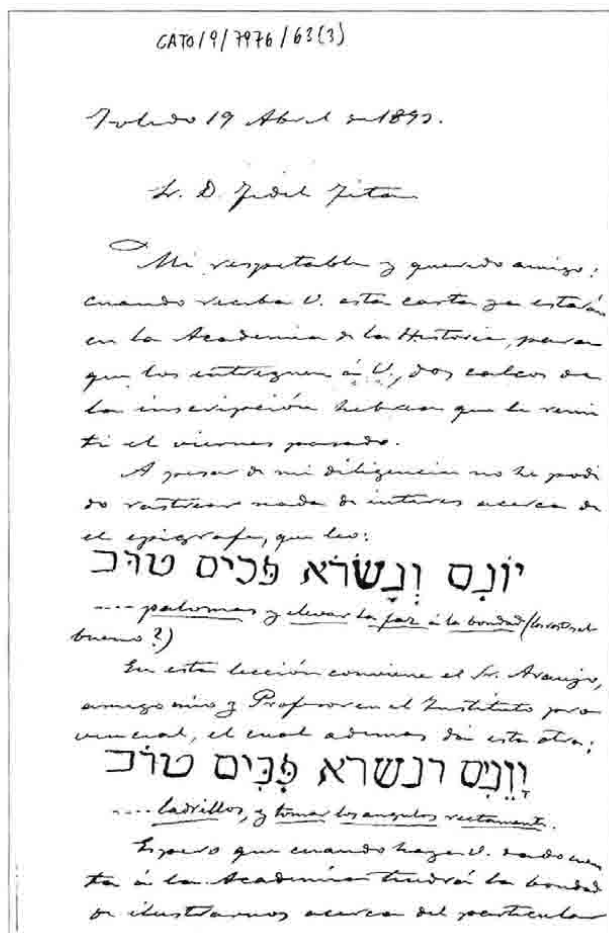 CATO/9/7976/63(3)
Toledo 19 Abril de 1892.
Sr. D. Fidel Fita
Mi respetable y querido amigo:
cuando reciba V. esta carta ya estarán
en la Academia de la Historia, para
que los entreguen á V., dos calcos de
la inscripción hebrea que le remi
tí el viernes pasado.
A pesar de mi diligencia no he podi
do rastrear nada de interes acerca de
el epígrafe, que leo:
יוֹנִם וְנָשׂרֹא פּכים טוב
.... palomas y elevar la faz á la bondad (los rostros al
bueno?)
En esta lección conviene el Sr. Araujo,
amigo mio y Profesor en el Instituto pro
vincial, el cual ademas da esta otra;
רנשרא פִּכִּים טוֹב
.... ladrillos, y tomar los angulos rectamente.
Espero que cuando haya V. dado cuen
ta á la Academia tendrá la bondad
de ilustrarnos acerca del particular